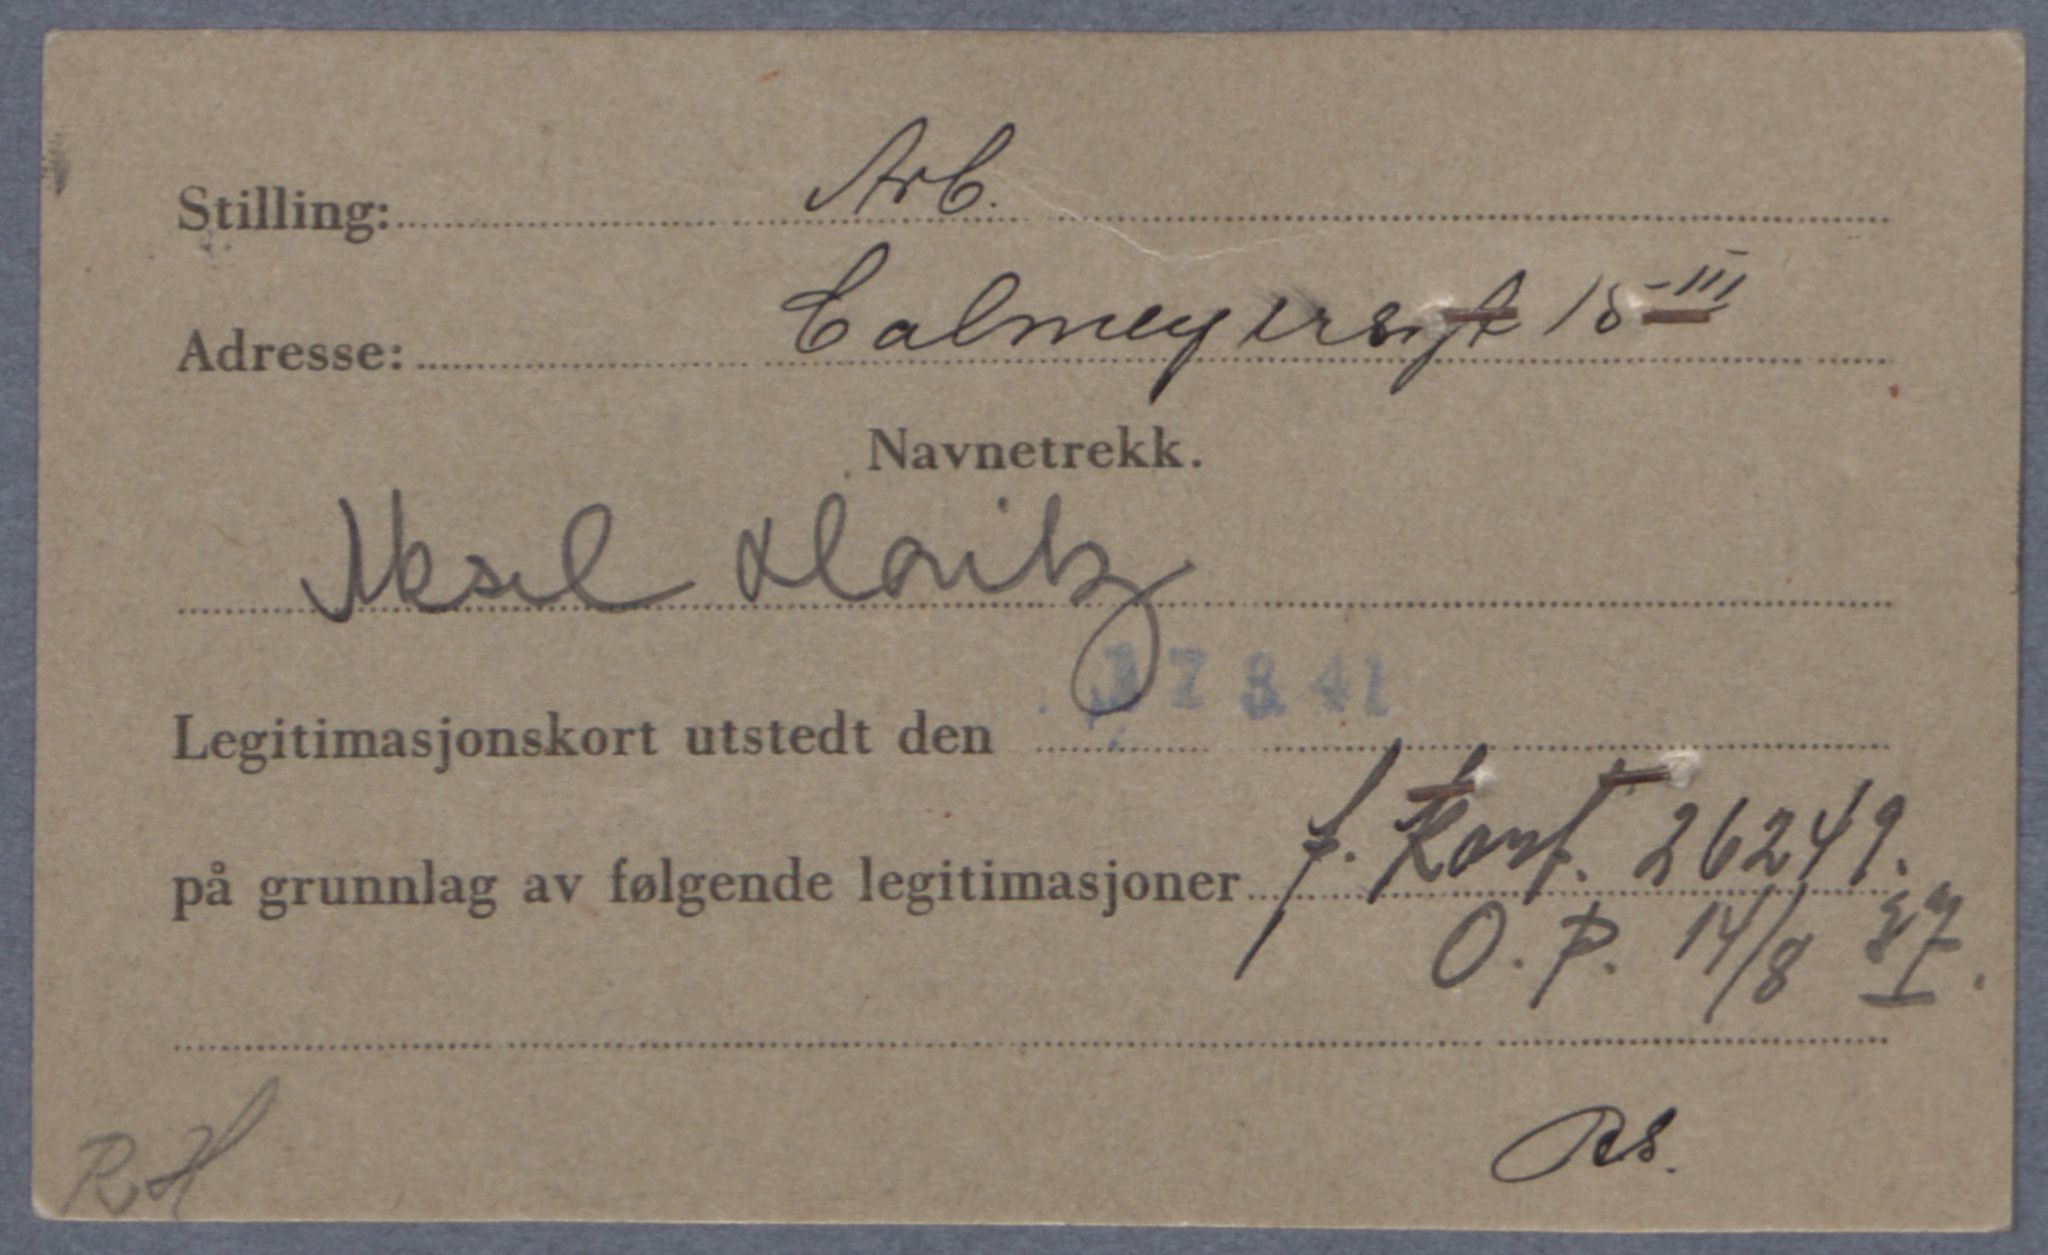 Stilling: Arb.
Adresse: Calmeyersgt 15-III
Navnetrekk.
Aksel
Legitimasjonskort utstedt den 7 3 41
på grunnlag av følgende legitimasjoner f. kort. 26249.
O. P. 14/8 37.
RH